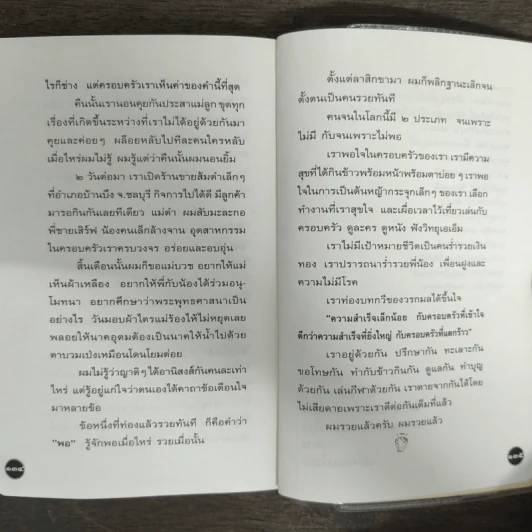 ไรก็ช่าง แต่ครอบครัวเราเห็นค่าของคำนี้ที่สุด
คืนนั้นเรานอนคุยกันประสาแม่ลูก ขุดทุก
เรื่องที่เกิดขึ้นระหว่างที่เราไม่ได้อยู่ด้วยกันมา
คุยและค่อยๆ ผล็อยหลับไปทีละคนใครหลับ
เมื่อไหร่ผมไม่รู้ ผมรู้แต่ว่าคืนนั้นผมนอนยิ้ม
๒ วันต่อมา เราเปิดร้านขายส้มตำเล็กๆ
ที่อำเภอบ้านบึง จ.ชลบุรี กิจการไปได้ดี มีลูกค้า
มารอกินกันเลยทีเดียว แม่ตำ ผมสับมะละกอ
พี่ชายเสิร์ฟ น้องคนเล็กล้างจาน อุตสาหกรรม
ในครอบครัวเราครบวงจร อร่อยและอบอุ่น
สิ้นเดือนนั้นผมก็ขอแม่บวช อยากให้แม่
เห็นผ้าเหลือง อยากให้พี่กับน้องได้ร่วมอนุ-
โมทนา อยากศึกษาว่าพระพุทธศาสนาเป็น
อย่างไร วันมอบผ้าไตรแม่ร้องไห้ไม่หยุดเลย
พลอยให้นาคอุดมต้องเป็นนาคให้น้ำไปด้วย
ตาบวมเป่งเหมือนโดนโยมต่อย
ผมไม่รู้ว่าญาติๆ ได้อานิสงส์กันคนละเท่า
ไหร่ แต่รู้อยู่แก่ใจว่าตนเองได้คาถาข้อเตือนใจ
มาหลายข้อ
ข้อหนึ่งที่ท่องแล้วรวยทันที ก็คือคำว่า
"พอ" รู้จักพอเมื่อไหร่ รวยเมื่อนั้น
ตั้งแต่ลาสิกขามา ผมก็พลิกฐานะเลิกจน
ตั้งตนเป็นคนรวยทันที
คนจนในโลกนี้มี ๒ ประเภท จนเพราะ
ไม่มี กับจนเพราะไม่พอ
เราพอใจในครอบครัวของเรา เรามีความ
สุขที่ได้กินข้าวพร้อมหน้าพร้อมตาบ่อยๆ เราพอ
ใจในการเป็นต้นหญ้ากระจุกเล็กๆ ของเรา เลือก
ทำงานที่เราสุขใจ และเผื่อเวลาไว้เที่ยวเล่นกับ
ครอบครัว ดูละคร ดูหนัง ฟังวิทยุเอเอ็ม
เราไม่มีเป้าหมายชีวิตเป็นคนร่ำรวยเงิน
ทอง เราปรารถนาร่ำรวยพี่น้อง เพื่อนฝูงและ
ความไม่มีโรค
เราท่องบทกวีของวรกมลได้ขึ้นใจ
"ความสำเร็จเล็กน้อย กับครอบครัวที่เข้าใจ
ดีกว่าความสำเร็จที่ยิ่งใหญ่ กับครอบครัวที่แตกร้าว"
เราอยู่ด้วยกัน ปรึกษากัน ทะเลาะกัน
ขอโทษกัน ทำกับข้าวกินกัน ดูแลกัน ทำบุญ
ด้วยกัน เล่นกีฬาด้วยกัน เราตายจากกันได้โดย
ไม่เสียดายเพราะเราดีต่อกันเต็มที่แล้ว
ผมรวยแล้วครับ ผมรวยแล้ว